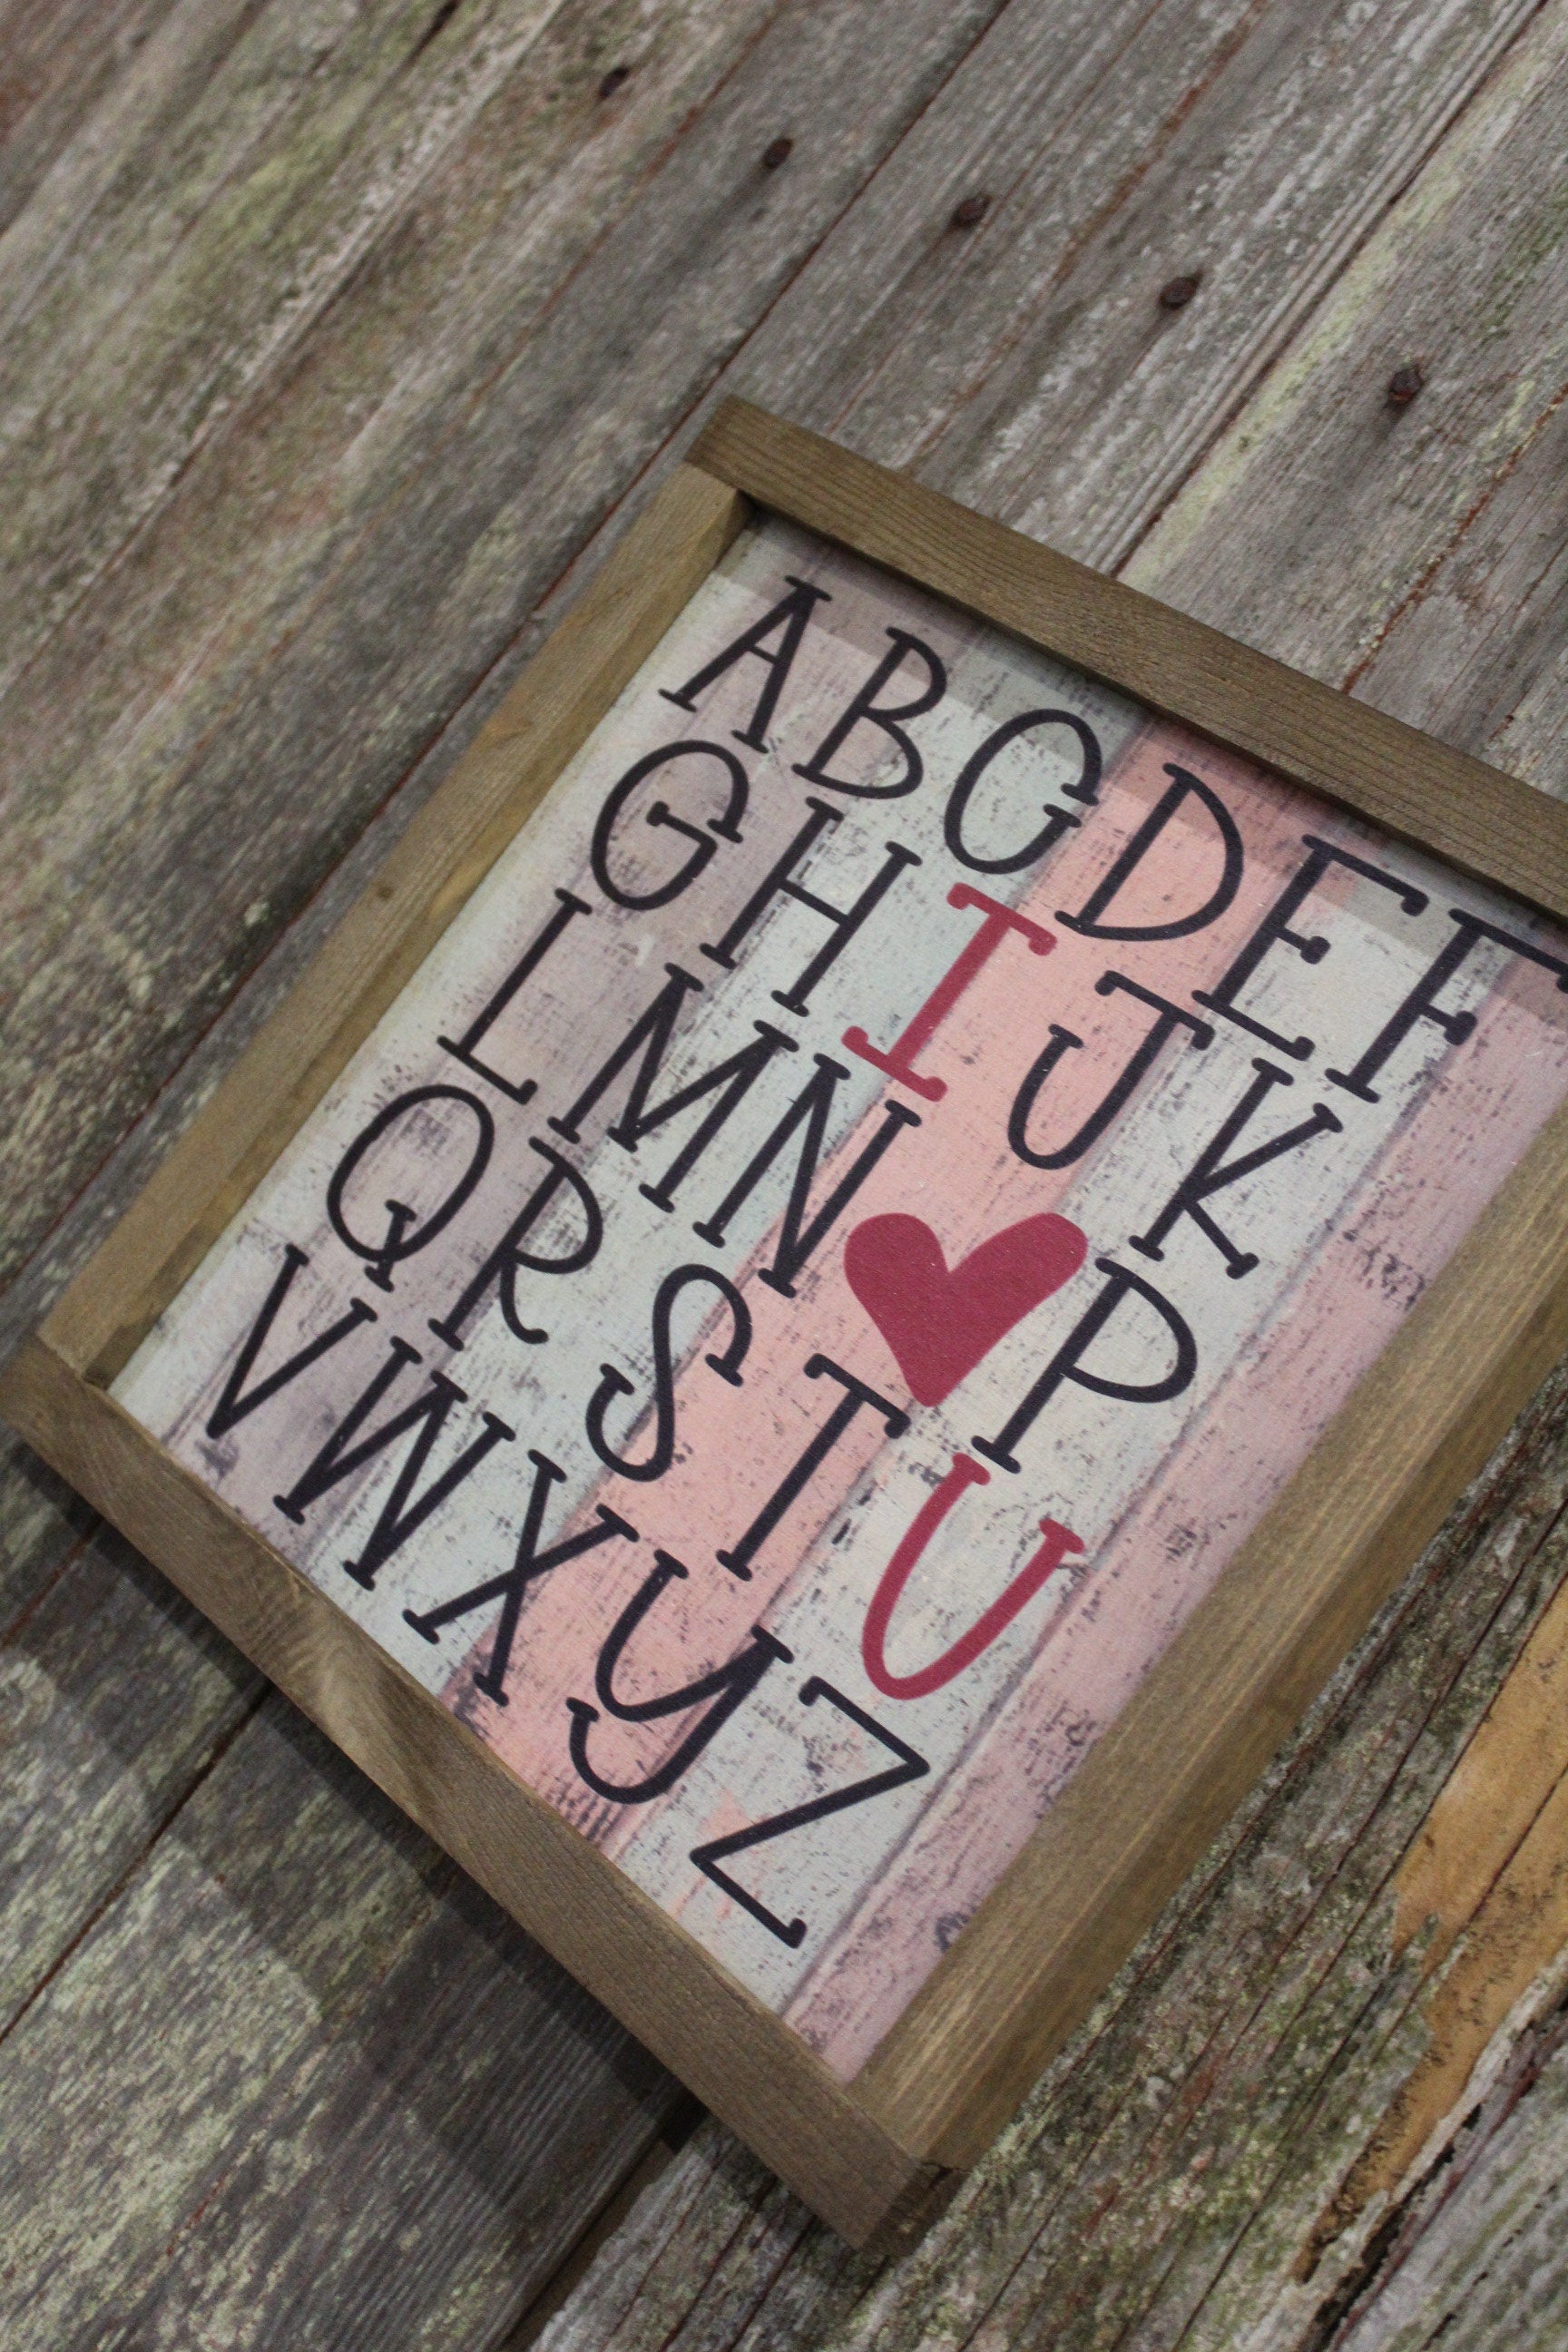 A B C D E F
G H I J K
L M N ♥ P
Q R S T U
V W X Y Z